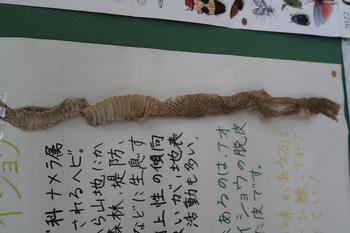 イショ
科ナメラ属
されるヘビ。
ら山地にか
森林、堤防、
などに生息す
上性の傾向
いが、地表
活動も多い。
あるのは、アオ
イショウの脱皮
た皮です。
味がある方は
ひ触ってみて
さい?